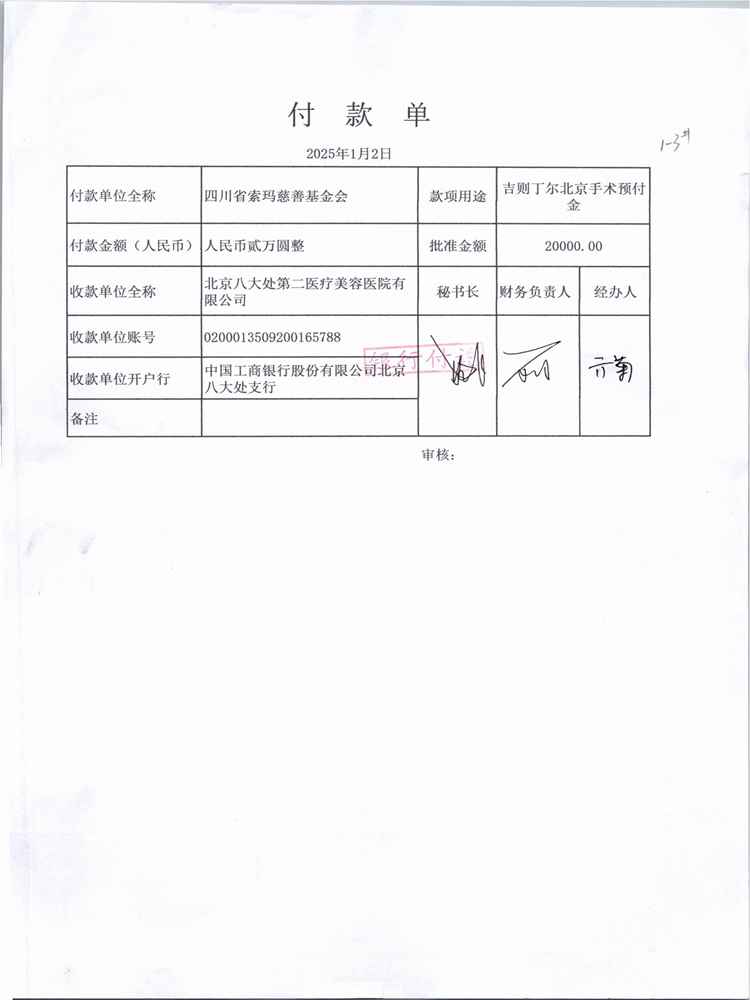 付款单
2025年1月2日
1-3#
付款单位全称 四川省索玛慈善基金会 款项用途 吉则丁尔北京手术预付
金
付款金额（人民币） 人民币贰万圆整 批准金额 20000.00
收款单位全称 北京八大处第二医疗美容医院有
限公司 秘书长 财务负责人 经办人
收款单位账号 0200013509200165788
银行付讫
收款单位开户行 中国工商银行股份有限公司北京
八大处支行
备注
审核：